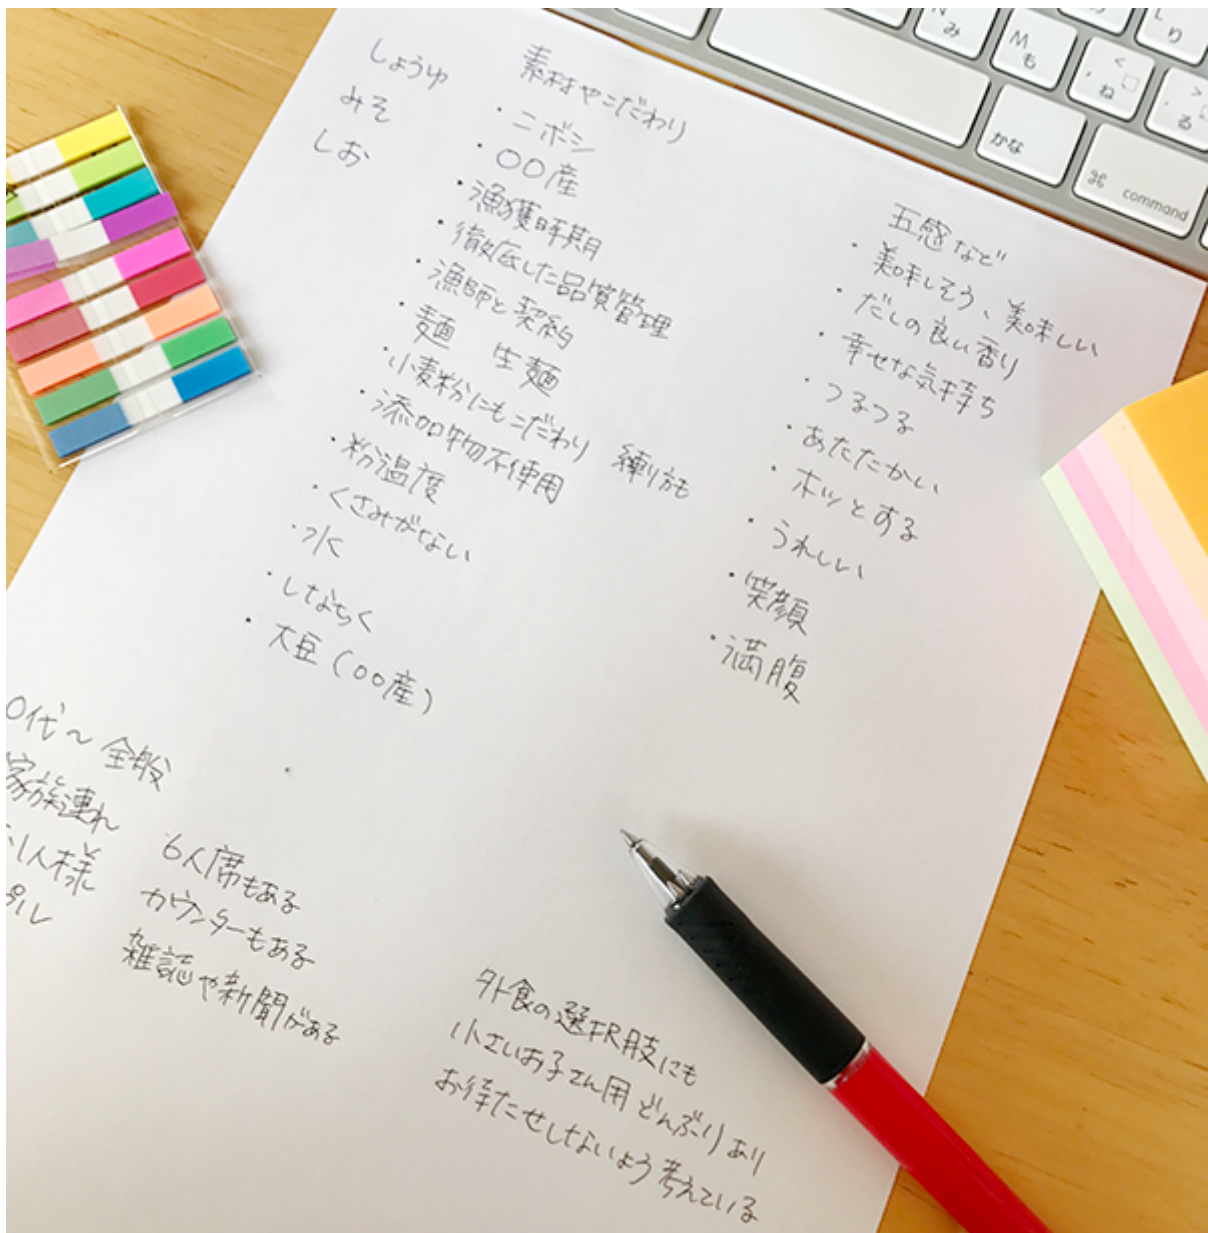 しょうゆ
みそ
しお
素材やこだわり
・ニボシ
・〇〇産
・漁獲時期
・徹底した品質管理
・漁師と契約
・麺 生麺
・小麦粉にもこだわり 練り方も
・添加物不使用
・粉温度
・くさみがない
・水
・しなちく
・大豆(〇〇産)
五感など
・美味しそう、美味しい
・だしの良い香り
・幸せな気持ち
・つるつる
・あたたかい
・ホッとする
・うれしい
・笑顔
・満腹
0代〜全般
家族連れ
人様
ル
6人席もある
カウンターもある
雑誌や新聞がある
外食の選択肢にも
小さいお子さん用どんぶりあり
お待たせしないよう考えている
N
み
M
も
<
、
ね
>
。
る
L
り
かな
⌘ command